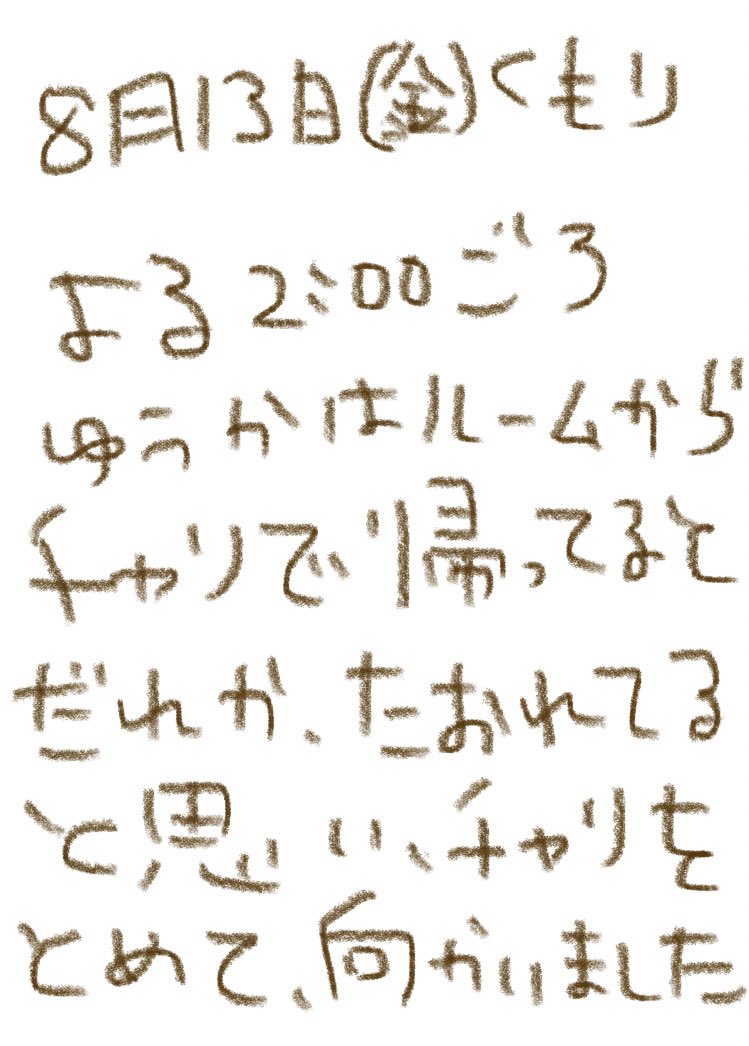 8月13日(金)くもり
よる2:00ごろ
ゆうかはルームから
チャリで帰ってると
だれか、たおれてる
と思い、チャリを
とめて、向かいました